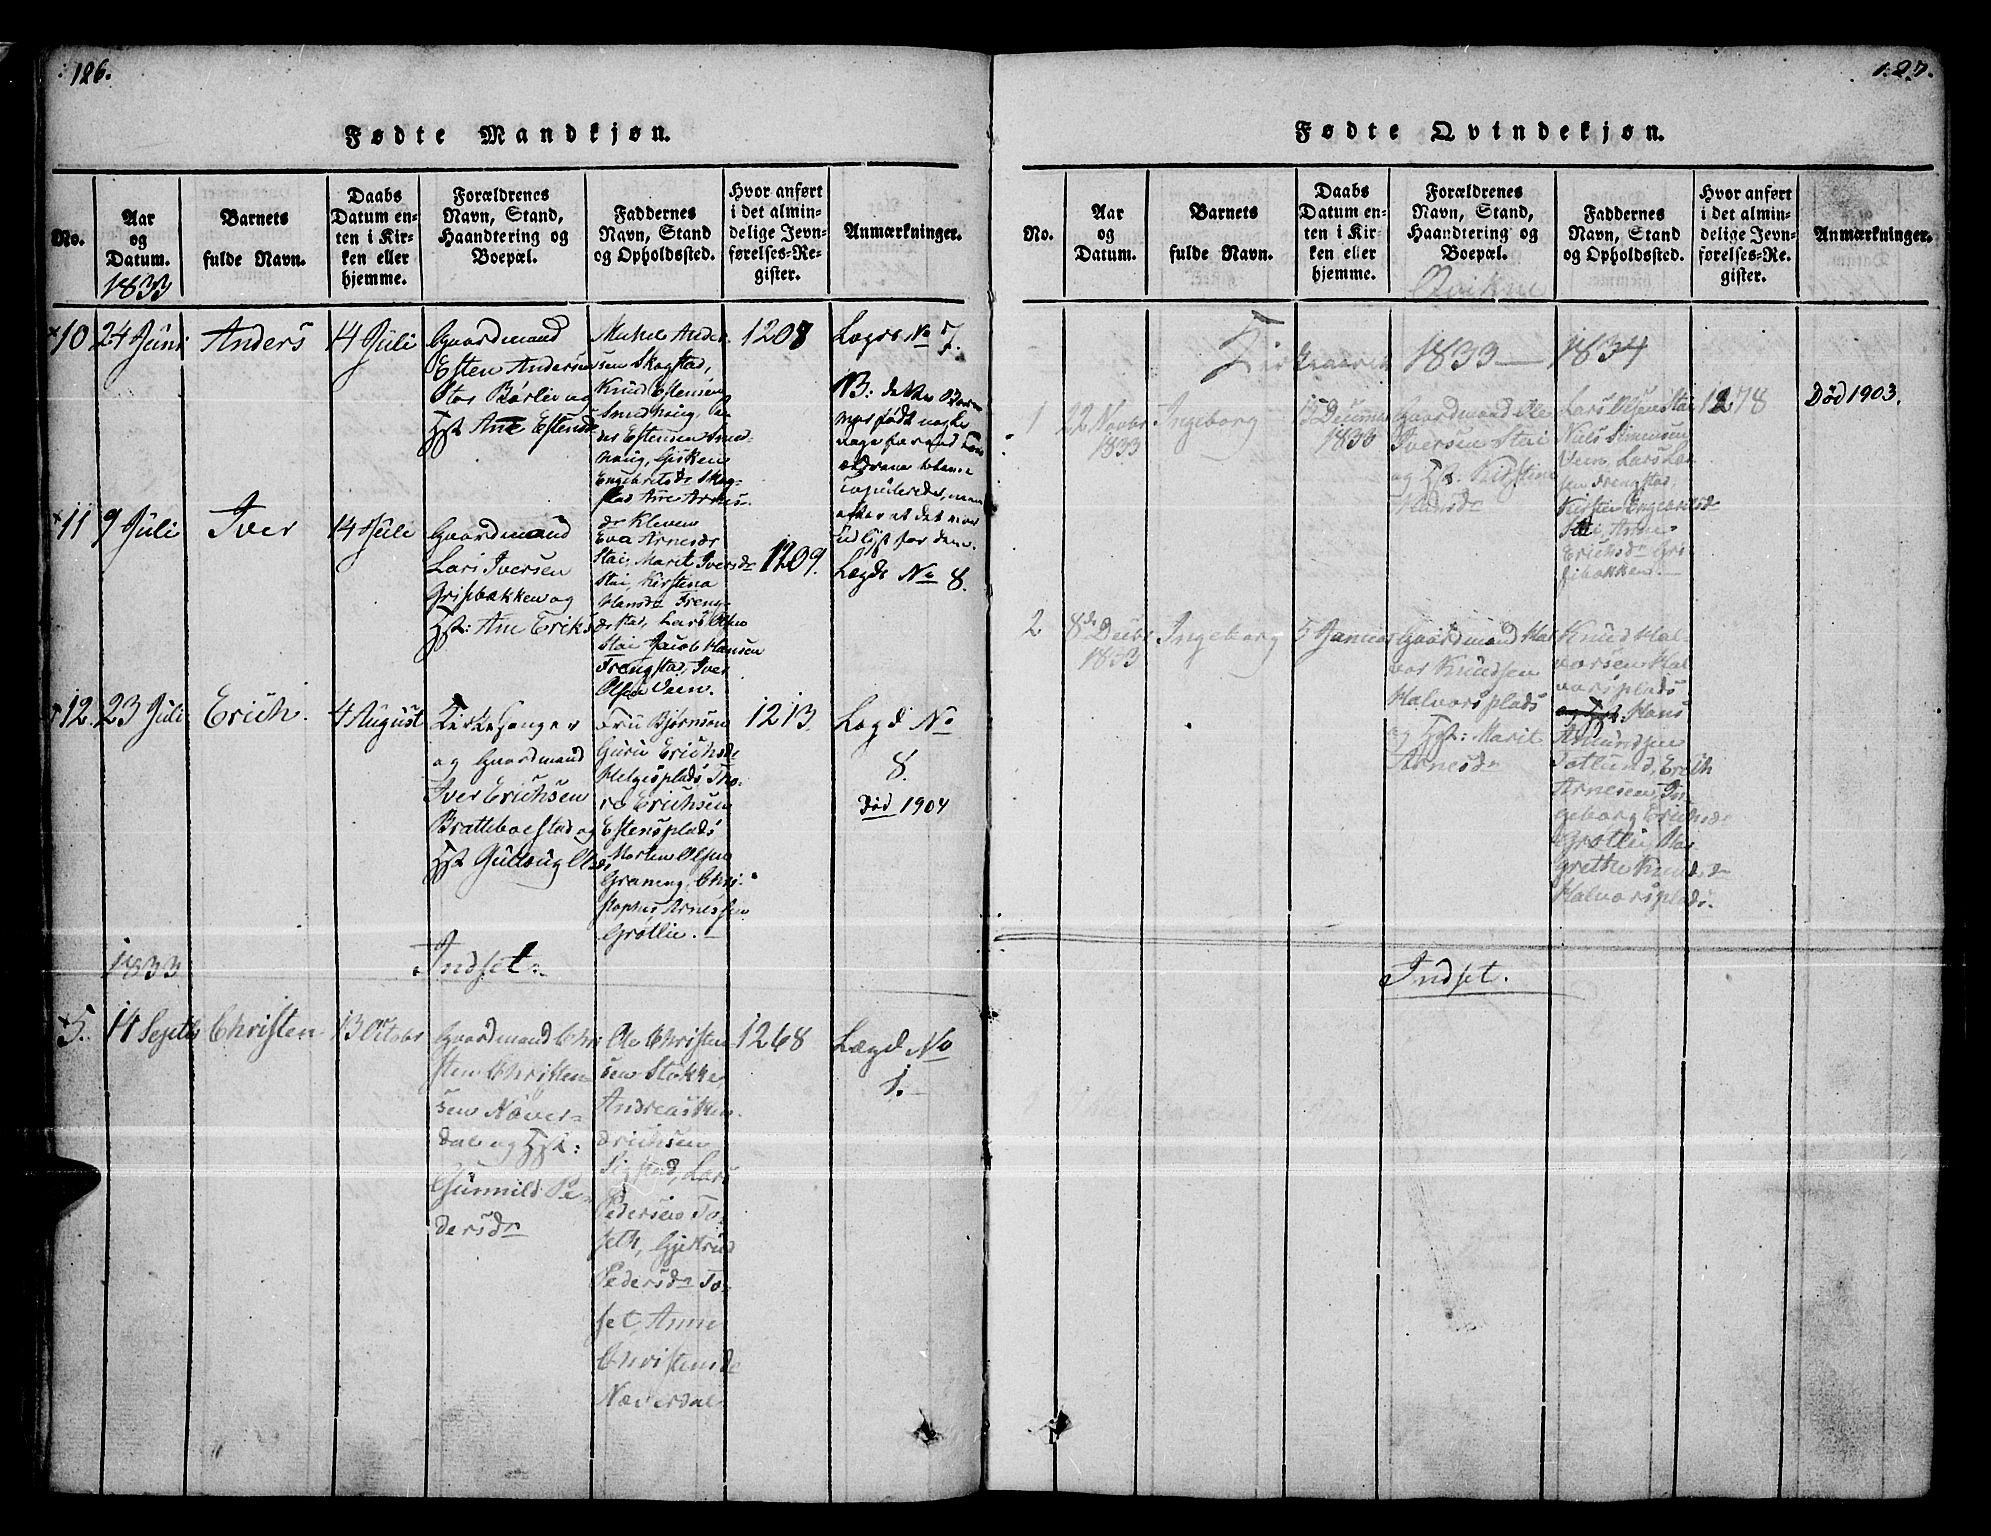 126.
Fødte Mandkjøn.
No.
Aar
og
Datum.
1833
Barnets
fulde Navn.
Daabs
Datum en-
ten i Kir-
ken eller
hjemme.
Forældrenes
Navn, Stand,
Haandtering og
Boepæl.
Faddernes
Navn, Stand
og Opholdssted.
Hvor anført
i det almin-
delige Jevn-
førelses-Re-
gister.
Anmærkninger.
10
24 Juni
Anders
14 Juli
Gaardmand
Esten Andersen
Stor Børlie og
Hst. Ane Estensd
Mikel Ander
sen Skogstad,
Knud Estensen
Smedhaug,
ders Estensen Smed
haug, Gisken
Engebretsdr Skog-
stad Ane Arnes-
dr Kleven
1208
Lægs No 7.
11
9 Juli
Iver
14 Juli
Gaardmand
Lars Iversen
Gripbakken og
Hst: Ane Eriks
Eva Arnesdr
Stai, Marit Iversdr
Stai Kirstina
Hansdr Freng-
stad, Lars Olsen
Stai Jacob Hansen
Frengstad, Iver
Olsen Veen.
1209.
Lægds No 8.
12.
23 Juli
Erich.
4 August
Kirkesanger
og Gaardmand
Iver Erichsen
Bratteboestad og
Hst Gulloug Olsd
Fru Bjørnson
Guru Erichsdr
Helgesplads Tho-
re Erichsen
Estensplads
Morten Olsen
Graneng, Chri-
stopher Arnessen
Grøtlie.
1213.
Lægd No
8.
Død 1904
1833
Indset.
5.
14 Septb
Christen
13 Octobr
Gaardmand Chri
sten Christen-
sen Næver-
dal og Hst:
Gunnild Pe-
dersdr
Ole Christen
sen Stokke,
Andreas Hen
drichsen
Sigstad, Lars
Pedersen To-
seth, Gjertrud
Pedersdr To-
set, Anne
Christensdr
Næverdal
1268
Lægd No
1.
127.
Fødte Qvindekjøn.
No.
Aar
og
Datum.
Barnets
fulde Navn.
Daabs
Datum en-
ten i Kir-
ken eller
hjemme.
Forældrenes
Navn, Stand,
Haandtering og
Boepæl.
Qvikne
Faddernes
Navn, Stand
og Opholdssted.
Hvor anført
i det almin-
delige Jevn-
førelses-Re-
gister.
Anmærkninger.
Kirkeaaret 1833 — 1834
1
22 Novbr
1833
Ingeborg
15 Decemb
1833
Gaardmand Ole
Iversen Stai
og Hst. Kirstine
Hansdr
Lars Olsen Stai
Niels Simensen
Veen, Lars Lar
sen Frengstad,
Kirsten Engebretsdr
Stai Anne
Ericksdr Gri
sibakken.
1278
Død 1903.
2
8de Decbr
1833
Ingeborg
5 Januar
Gaardmand Hal
vor Knudsen
Halvorsplads
og Hst: Marit
Arnesdr
Knud Hal-
vorsen Hal
vorsplads
og Hst. Hans
Amundsen
Erich
Arnesen In-
geborg Erichsdr
Grøtlie, Mar
grethe Knudsdr
Halvorsplads.
Indset.